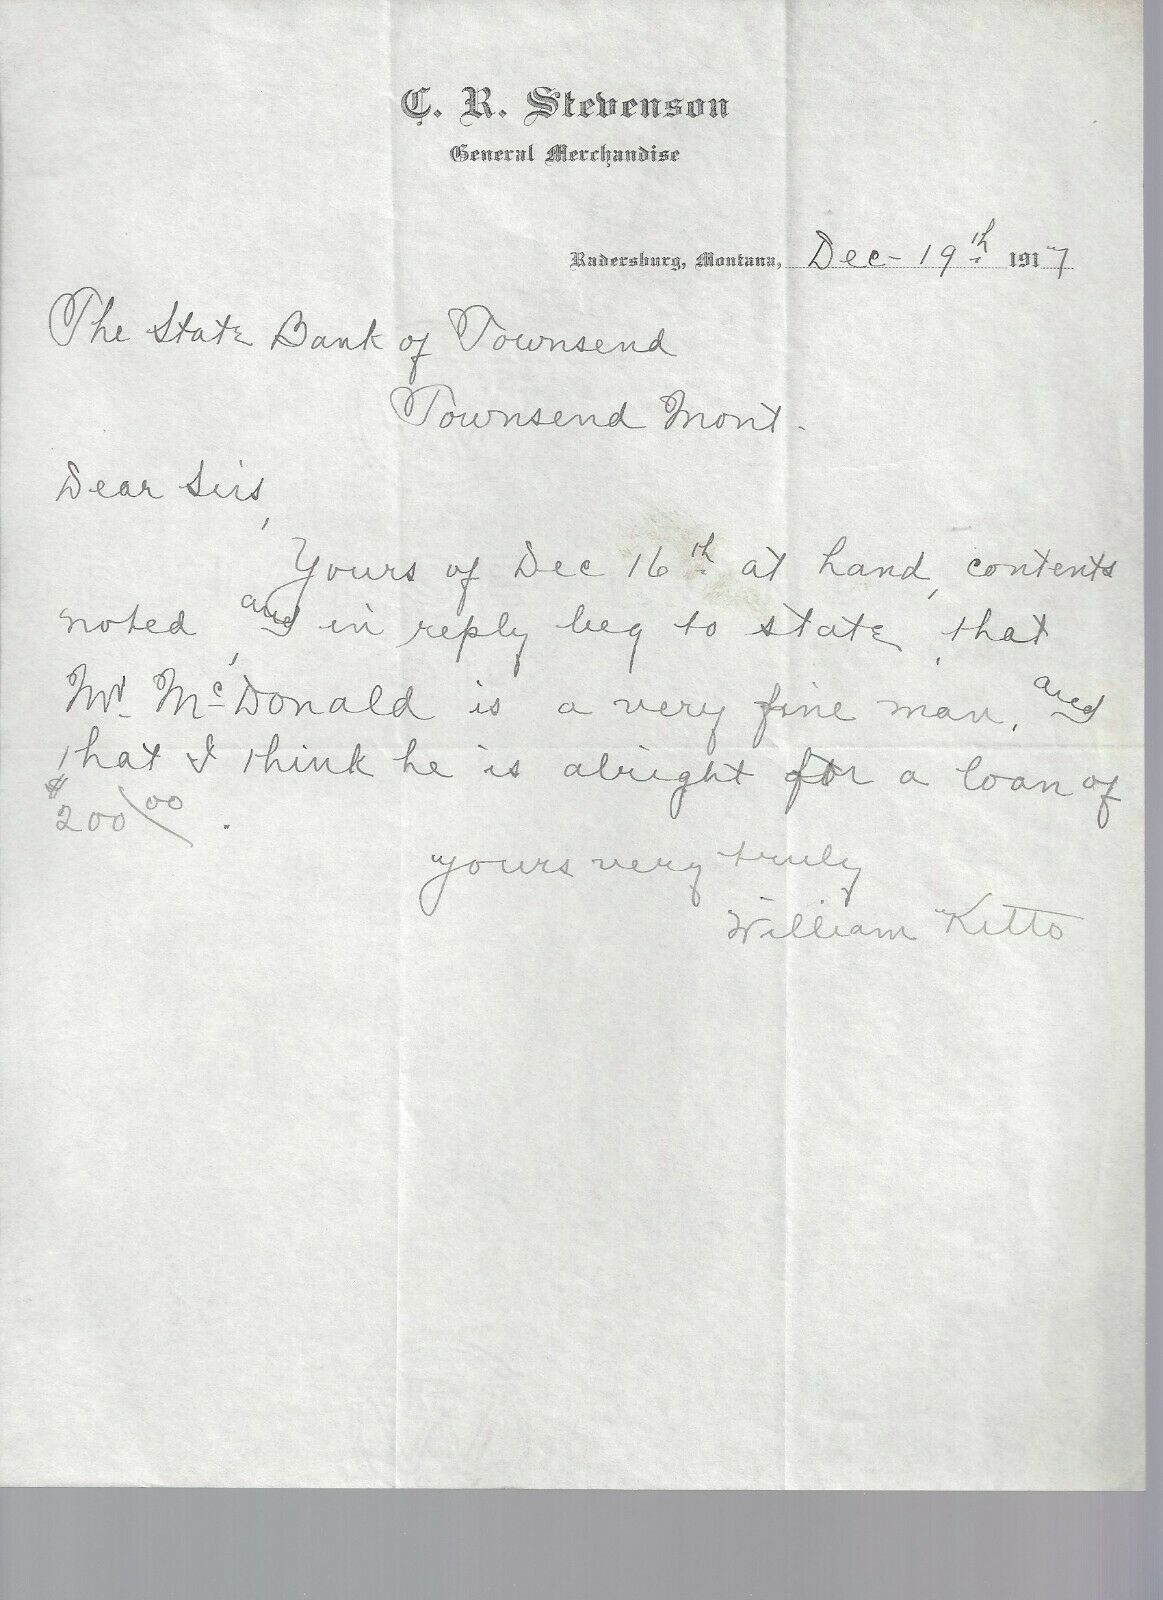 C. R. Stevenson
General Merchandise
Radersburg, Montana, Dec- 19th 1917
The State Bank of Townsend
Townsend Mont.
Dear Sirs,
Yours of Dec 16th at hand, contents
noted, and in reply beg to state, that
Mr. McDonald is a very fine man, and
that I think he is alright for a loan of
$200 00.
Yours very truly
William Kitto